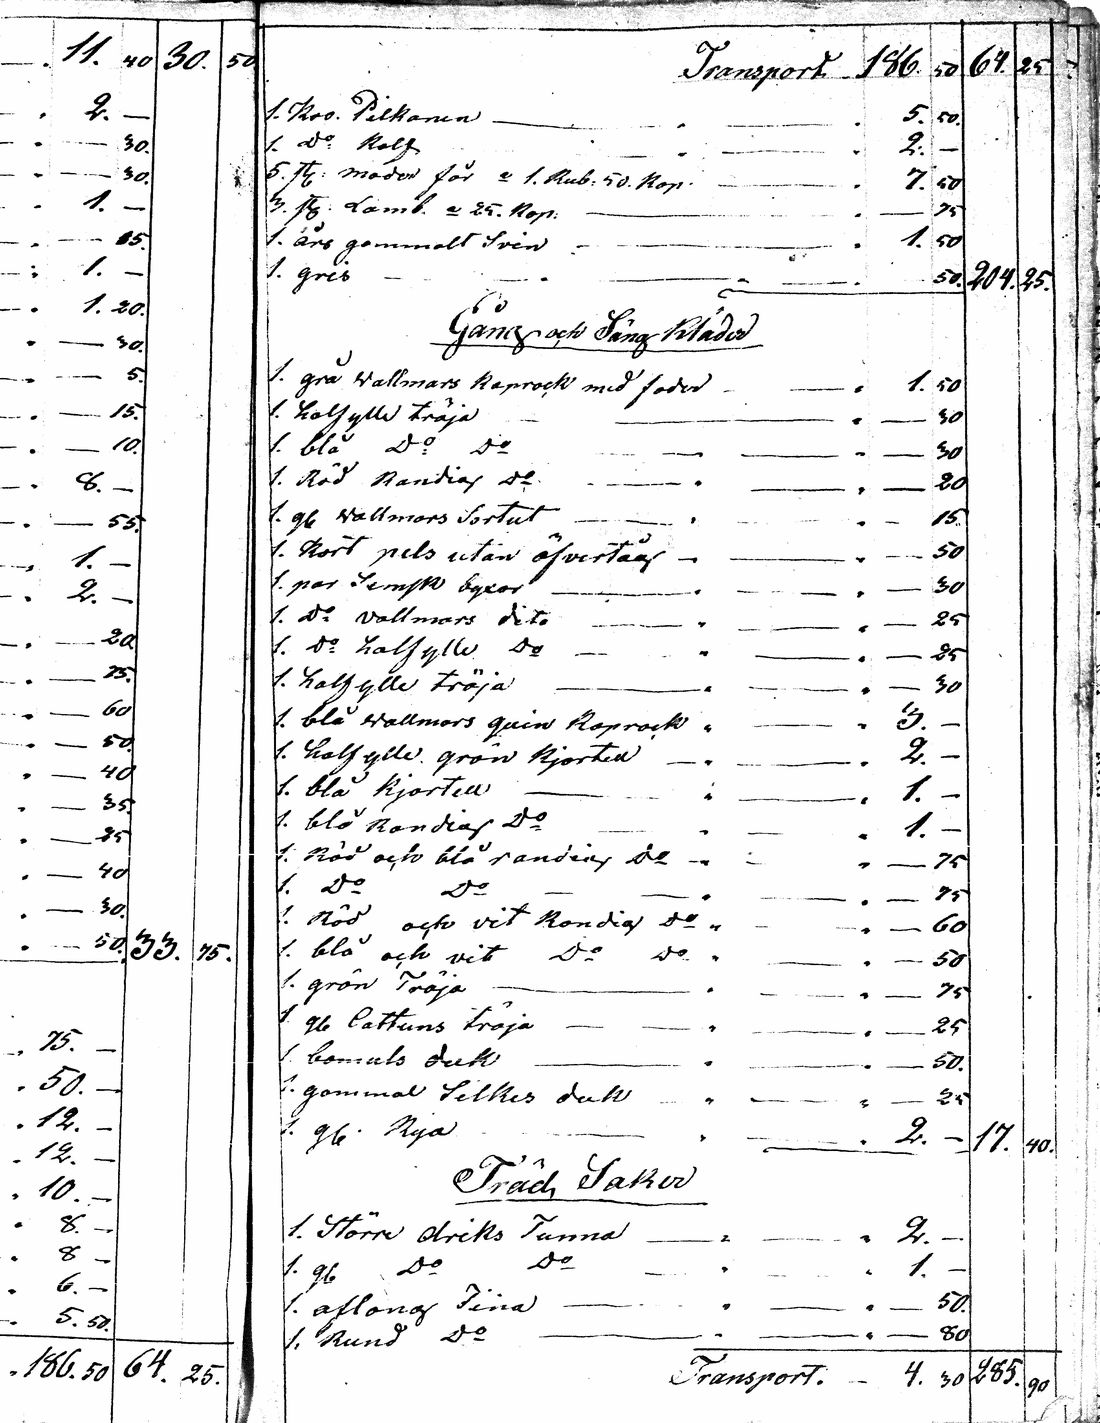 11. 40 30. 50
2. —
30.
30.
1. —
15.
1. —
1. 20.
30.
5.
15.
10.
8. —
55.
1. —
2. —
20
75.
60
50.
40
35.
25
40
30.
50. 33. 75.
75. —
50. —
12. —
12. —
10. —
8. —
8 —
6. —
5. 50.
186. 50 64. 25.
Transport 186. 50 64. 25
1. Koo. Pilkanen 5. 50.
1. Do Kalf 2. —
5. st: moder får a 1. Rub: 50. Kop. 7. 50
3. st: Lamb. a 25. Kop: 75
1. års gammalt Svin 1. 50
1. gris 50. 204. 25.
Gång och Säng Kläder
1. grå wallmars Kaprock med foder 1. 50
1. halfylle tröja 30
1. blå Do Do 30
1. Röd Randig Do 20
1. gl wallmars Sortut 15
1. Kort pels utan öfvertåg 50
1. par Semsk byxor 30
1. Do vallmars dito 25
1. Do halfylle Do 25
1. halfylle tröja 30
1. blå wallmars quin Kaprock 3. —
1. halfylle grön Kjortell 2. —
1. blå Kjortell 1. —
1. blå Randig Do 1. —
1. Röd och blå randig Do 75
1. Do Do 75
1. Röd och vit Randig Do 60
1. blå och vit Do Do 50
1. grön Tröja 75
1 gl Cattuns tröja 25
1 bomuls duk 50.
1. gammal Silkes duk 25
1. gl. Rya 2. — 17. 40.
Träd Saker
1. Större driks Tunna 2. —
1. gl Do Do 1. —
1. aflång Tina 50.
1. Rund Do 80
Transport. 4. 30 285. 90